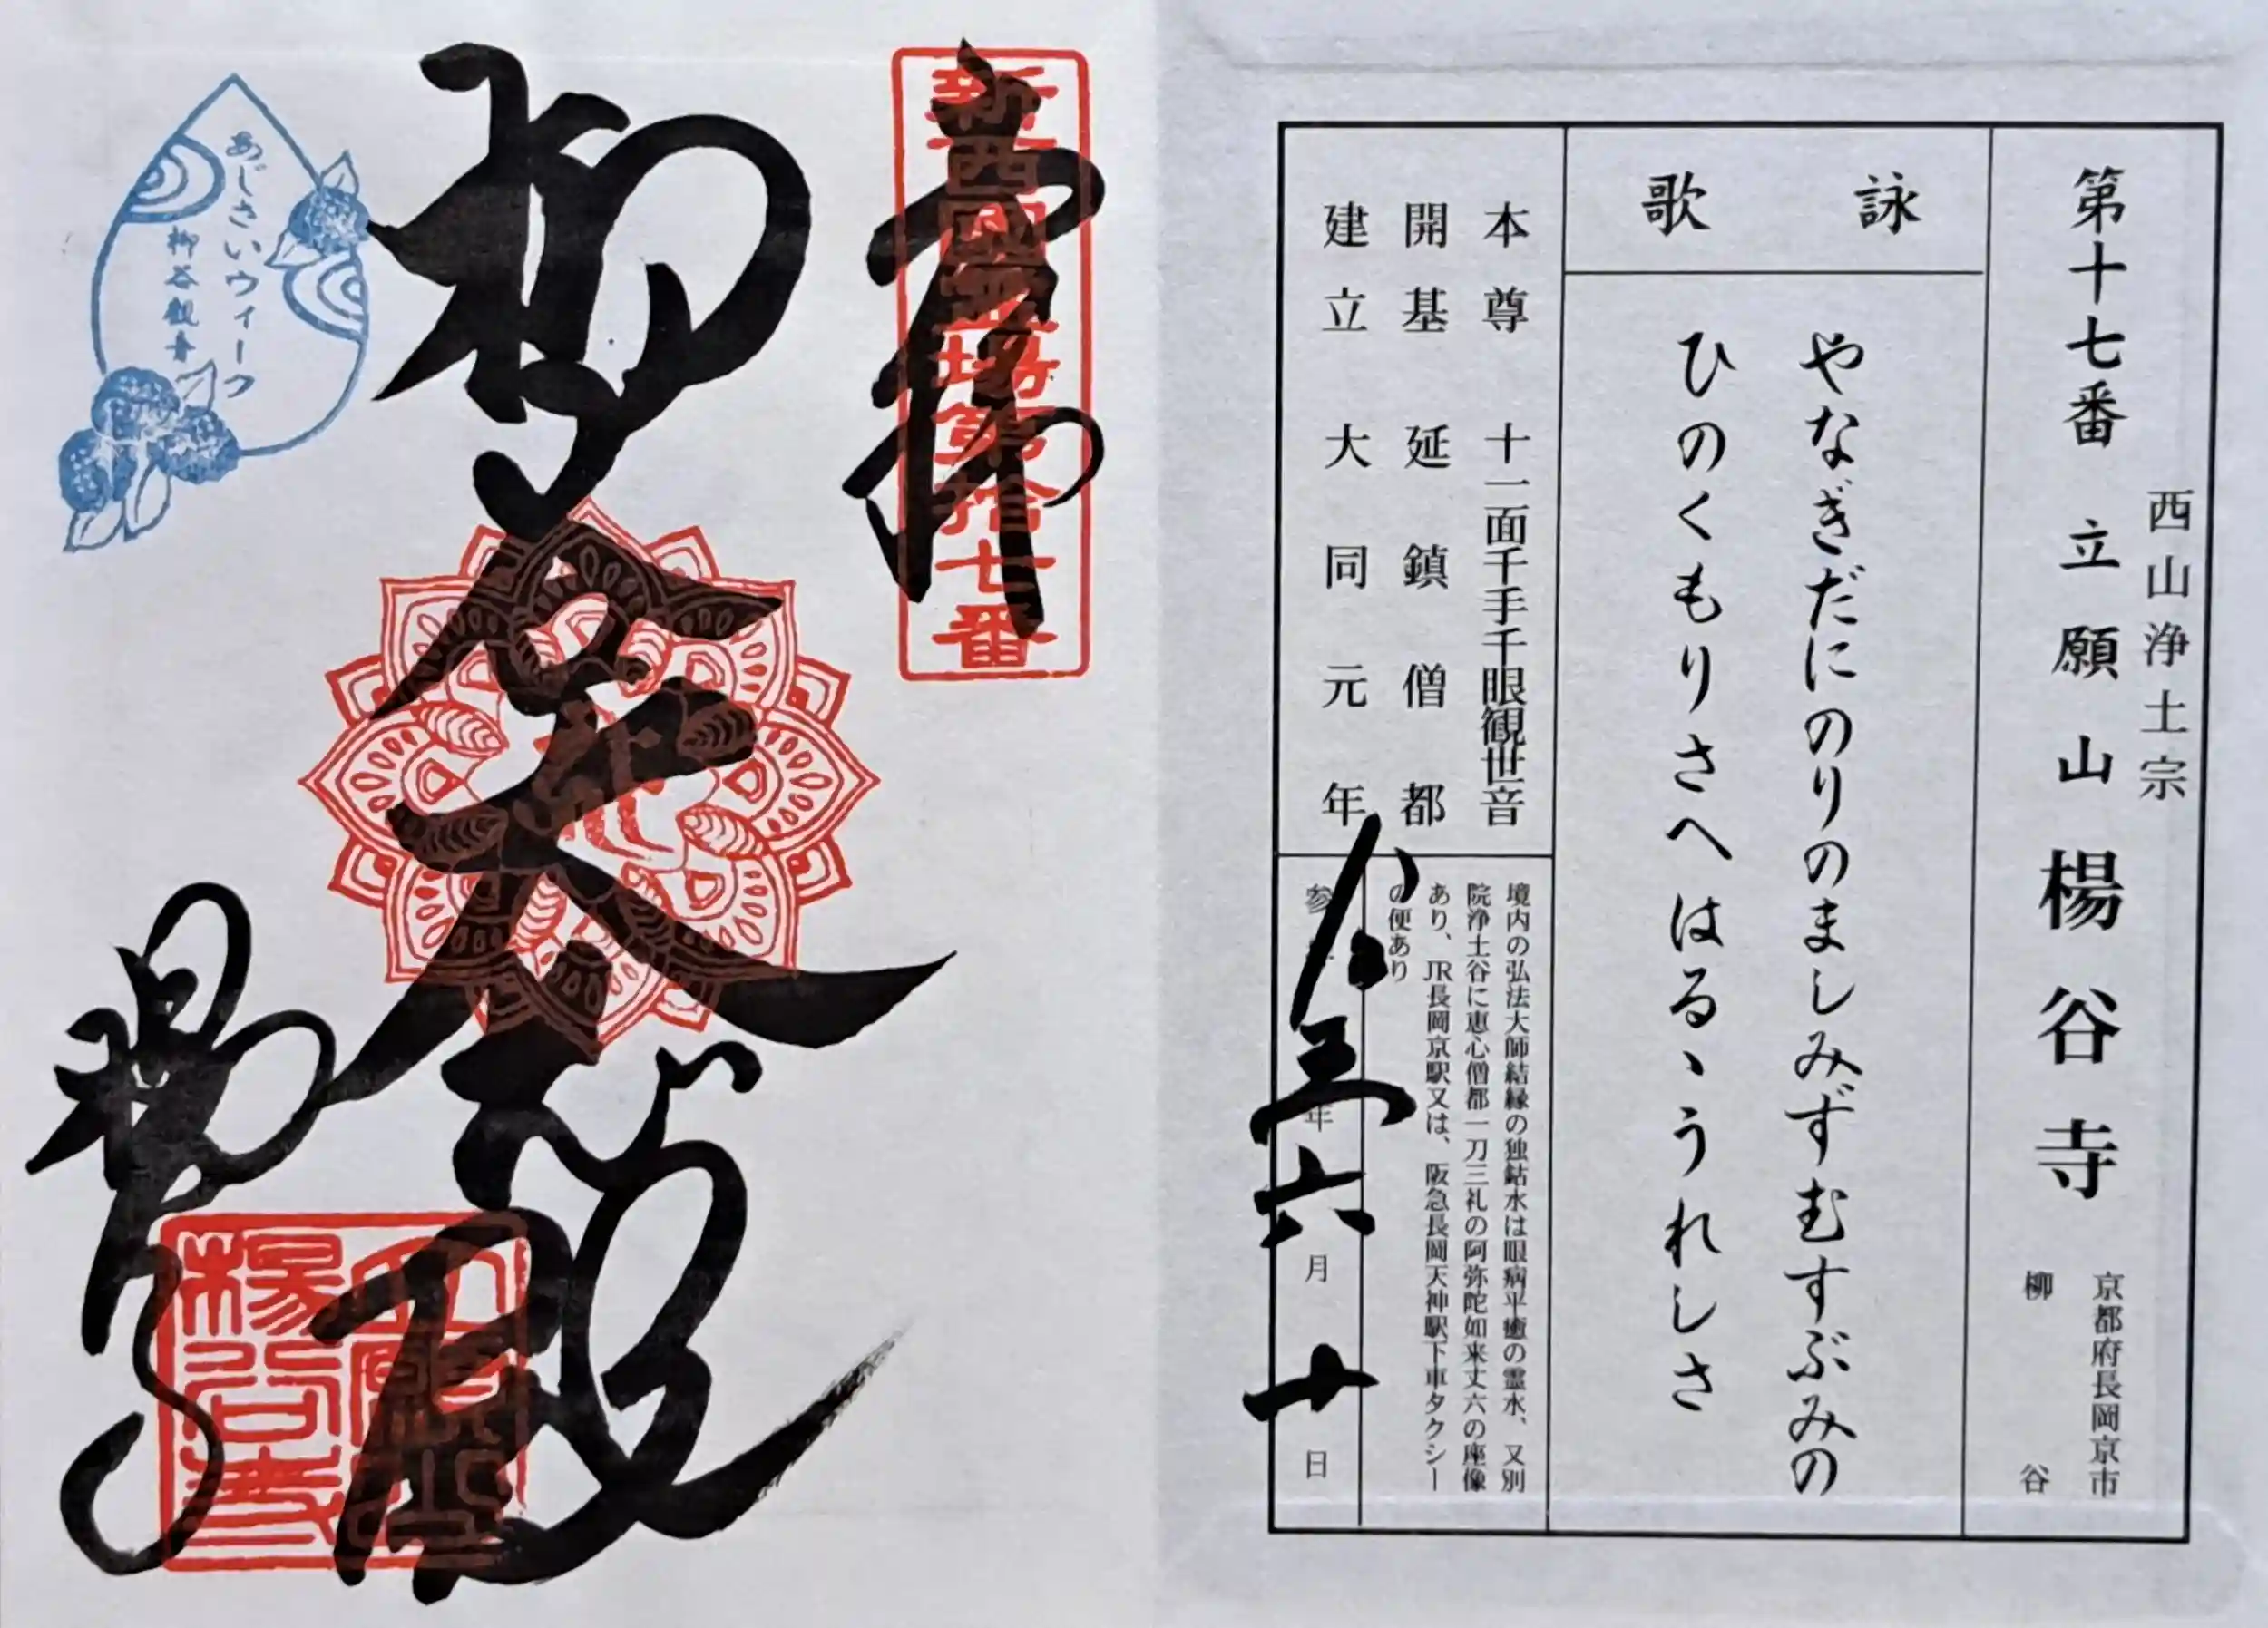 西山浄土宗
第十七番 立願山 楊谷寺
京都府長岡京市
柳谷
詠歌
やなぎだにのりのましみずむすぶみの
ひのくもりさへはるゝうれしさ
本尊 十一面千手千眼観世音
開基 延鎮僧都
建立 大同元年
境内の弘法大師結縁の独鈷水は眼病平癒の霊水、又別
院浄土谷に恵心僧都一刀三礼の阿弥陀如来丈六の座像
あり、JR長岡京駅又は、阪急長岡天神駅下車タクシー
の便あり
年六月十日
奉拝
新西國霊場第拾七番
柳谷大悲殿
楊谷寺
立願山
楊谷寺
あじさいウィーク
柳谷観音